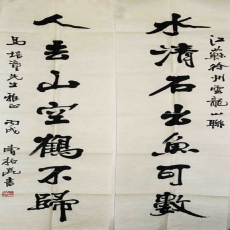 江蘇徐州雲龍山聯
水清石出魚可數
人去山空鶴不歸
先生雅正
丙戌
書